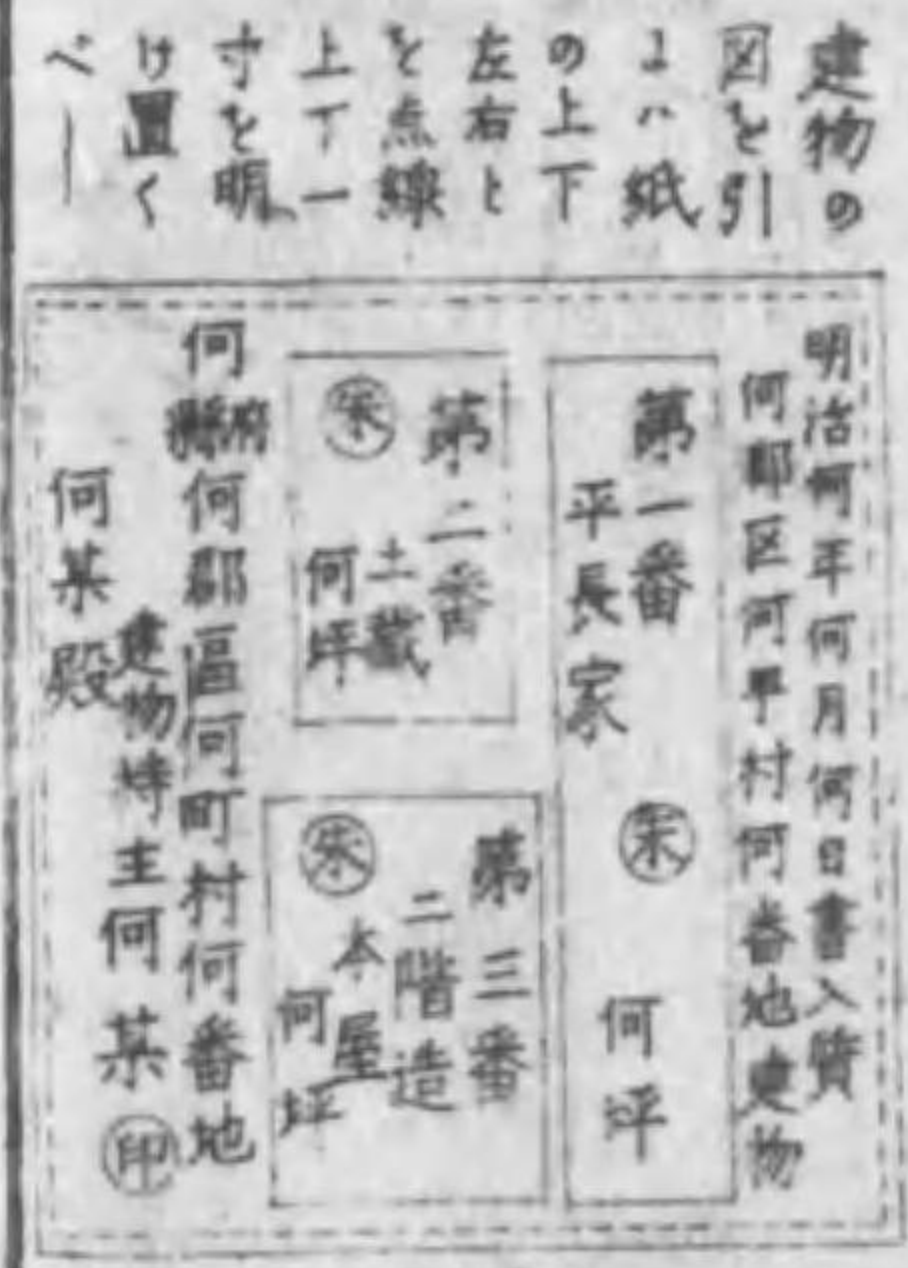 建物の
図を引
よハ紙
の上下
左右と
を点線
上下一
寸を明
け置く
べし
明治何年何月何日書入質
何郡区何町村何番地建物
第一番
平長家
㊍
何坪
第二番
土蔵
何坪
第三番
二階造
本屋
何坪
何府縣何郡區何町村何番地
建物持主何某㊞
何某殿